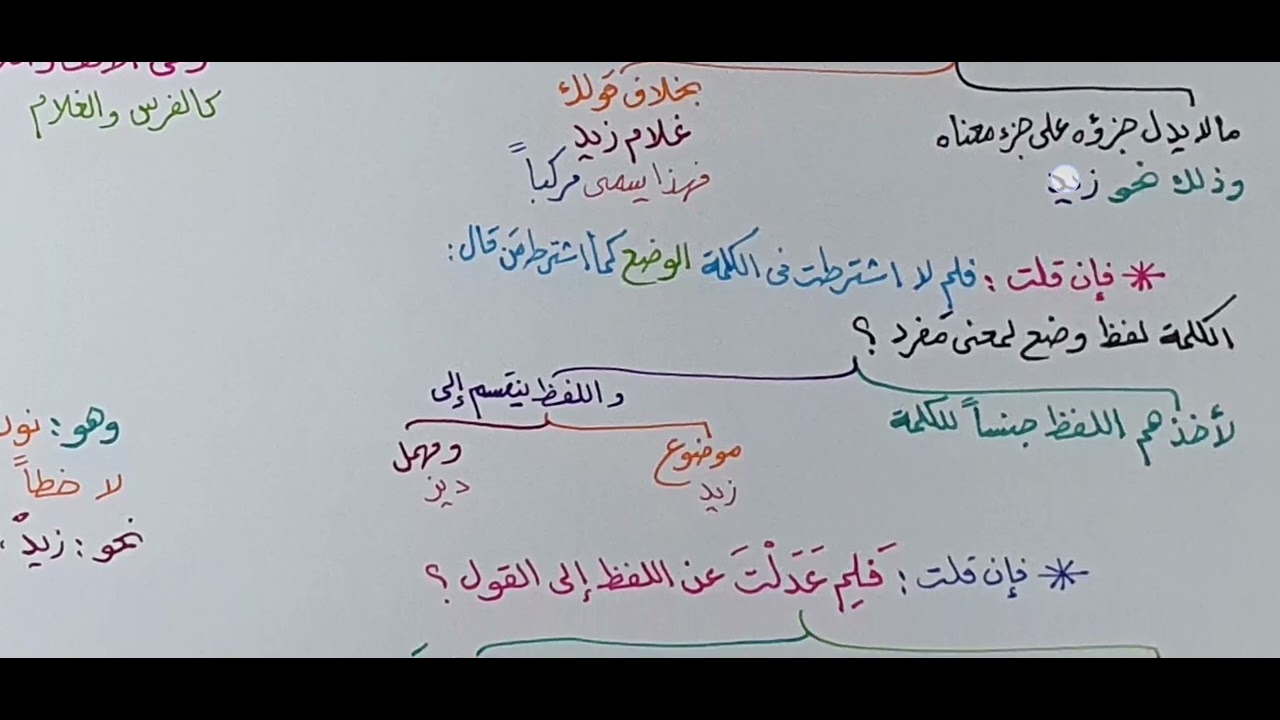 ما لا يدل جزؤه على جزء معناه
وذلك نحو زيد
بخلاف قولك
غلام زيد
فهذا يسمى مركباً
كالفرس والغلام
* فإن قلت : فلم لا اشترطت في الكلمة الوضع كما اشترط مَن قال :
الكلمة لفظ وضع لمعنى مفرد ؟
لأخذهم اللفظ جنساً للكلمة
واللفظ ينقسم إلى
موضوع
زيد
ومهمل
ديز
وهو :
لا خطاً
نحو : زيدْ ،
* فإن قلت : فَلِم عَدَلْتَ عن اللفظ إلى القول ؟